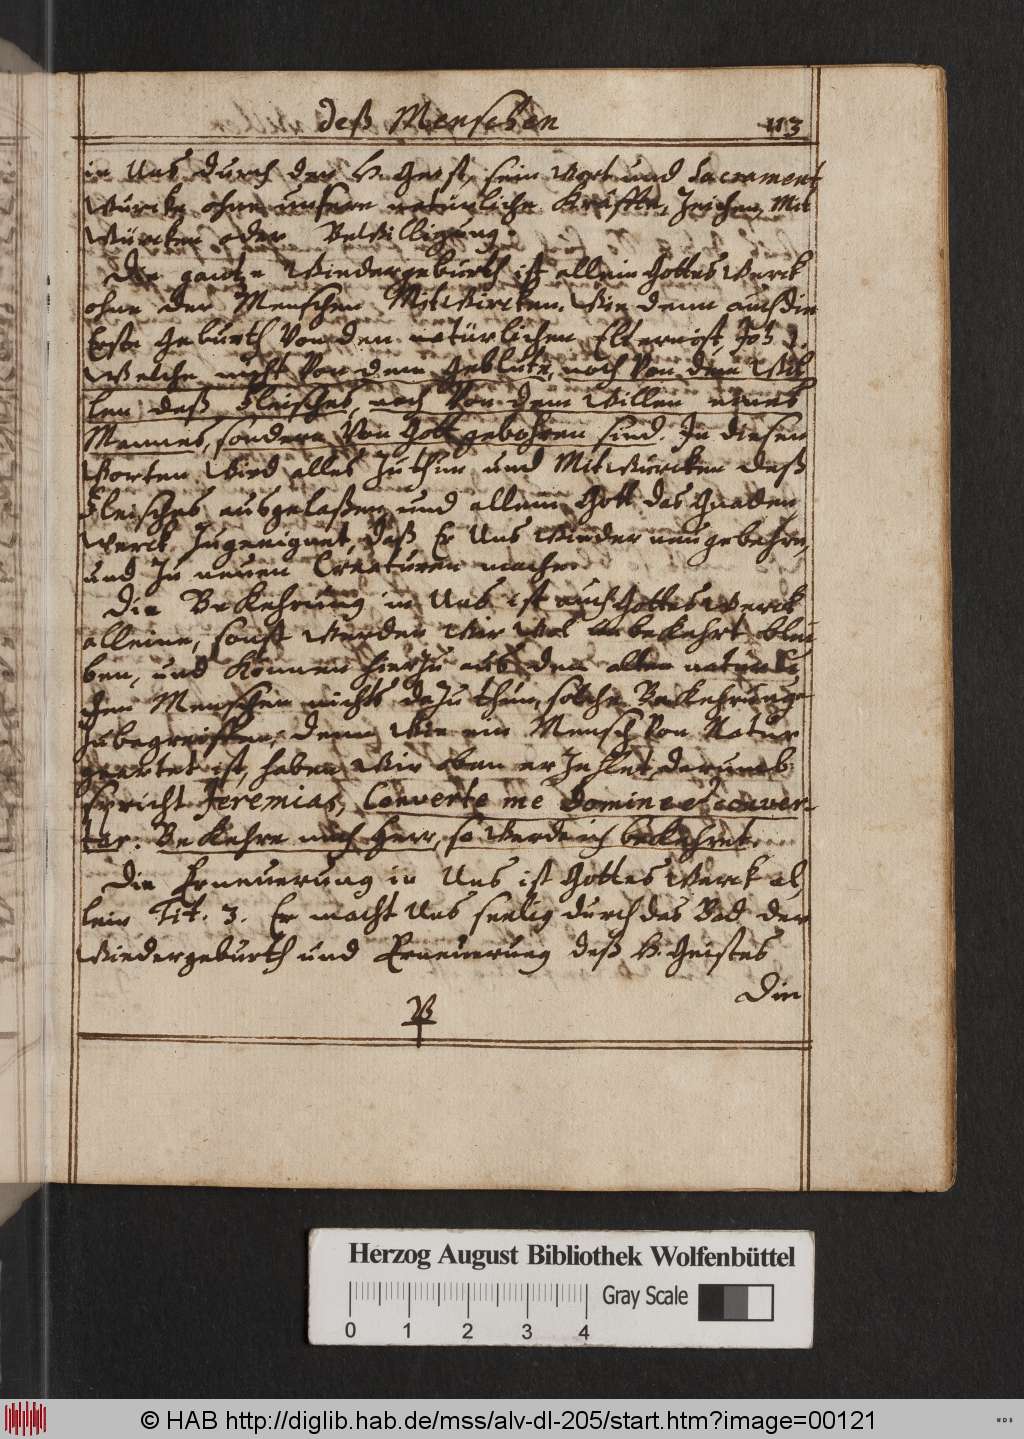 deß Menschen 113
in Uns durch den H. Geist, sein Wort und Sacrament
Würcke ohne unsere natürliche Kräffte, Zeichen, Mit
Würcken oder BeWilligung.
Die gantze Wiedergeburth ist allein Gottes Werck
ohne der Menschen MitWircken, Wie denn auch die
Erste Geburth Von den natürlichen Eltern ist, Joh 1.
Welche nicht Von dem Geblüte, noch Von dem Wil
len deß Fleisches, noch Von dem Willen eines
Mannes, sondern Von Gott gebohren sind. In diesen
Worten Wird alles Zuthun und MitWürcken deß
Fleisches ausgelaßen, und allein Gott das Gnaden
Werck Zugeeignet, daß Er Uns Wieder neugebehre,
und Zu neuen Creaturen mache.
Die BeKehrung in Uns ist auch Gottes Werck
alleine, sonst Werden Wir Wol UnbeKehrt blei
ben, und Können hierZu aus dem alten natürli
chen Menschen nichts daZu thun, solche BeKehrung
Zubegreiffen, denn Wie ein Mensch Von Natur
geartet ist, haben Wir oben erZehlet, darumb
spricht Jeremias, Converte me Domine et conver-
tar. BeKehre mich Herr, so Werde ich beKehret.
Die Erneuerung in Uns ist Gottes Werck al
lein Tit. 3. Er macht Uns seelig durch das Bad der
Wiedergeburth und Erneuerung deß H. Geistes
Die
P
Herzog August Bibliothek Wolfenbüttel
0 1 2 3 4 Gray Scale
© HAB http://diglib.hab.de/mss/alv-dl-205/start.htm?image=00121